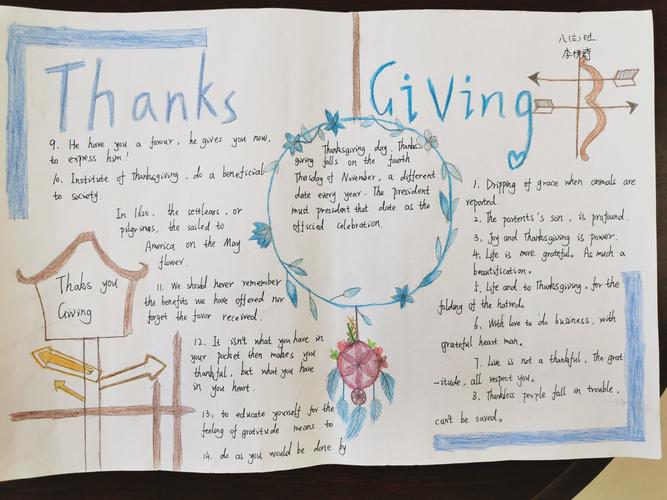 Thanks
Giving
八(三)班
9. He have you a favour, he gives you now,
to express him!
10. Institute of Thanksgiving, do a beneficial
to society.
In 1620, the settlears, or
pilgrimas, the sailed to
America on the May
flower.
Thaks you
Giving
11. We should never remember
the benefits we have offered nor
forget the favor received.
12. It isn't what you have in
your pocket then makes you
thankful, but what you have
in you heart.
13. to educate yourself for the
feeling of gratitude means to
14. do as you would be done by
Thanksgiving day. Thanks-
giving falls on the fourth
Thursday of November, a different
date every year. The president
must presdent that date as the
officied celebration.
1. Dripping of grace when animals are
reported.
2. The partents's son, is profound.
3. Joy and Thanksgiving is power.
4. Life is more grateful. As much a
beautification.
5. Life and to Thanksgiving, for the
folding of the hatred.
6. With love to do business, with
grateful heart man.
7. Live is not a thankful, The grat
-itude, all respect you.
8. Thankless people fall in trouble,
can't be saved.